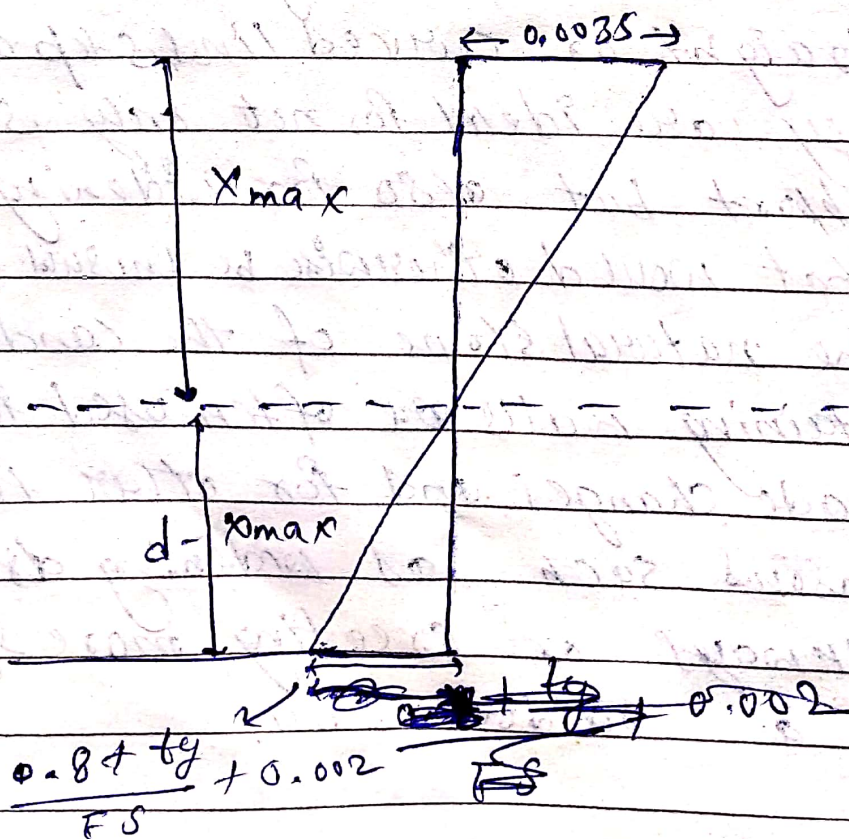 ← 0.0035 →
Xmax
d - xmax
0.002
0.87 fy / ES + 0.002
ES